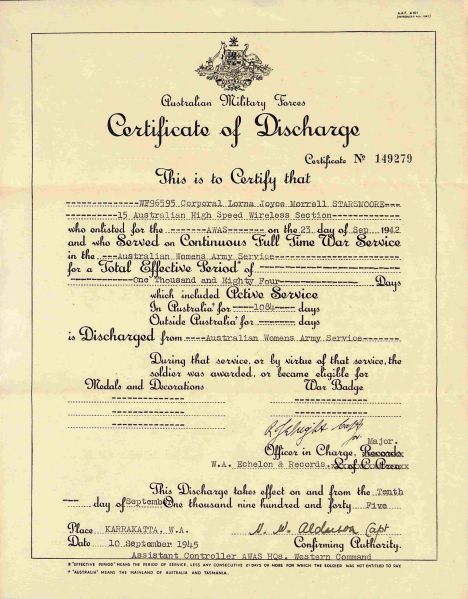 Australian Military Forces
Certificate of Discharge
Certificate No 149279
This is to Certify that
WF96595 Corporal Lorna Joyce Morrell STARSMOORE
15 Australian High Speed Wireless Section
who enlisted for the AWAS on the 23 day of Sep 1942
and who Served on Continuous Full Time War Service
in the Australian Womens Army Service
for a Total Effective Period* of
One Thousand and Eighty Four Days
which included Active Service
In Australia† for 1084 days
Outside Australia† for days
is Discharged from Australian Womens Army Service
During that service, or by virtue of that service, the
soldier was awarded, or became eligible for
Medals and Decorations War Badge
Capt
for Major.
Officer in Charge, Records
W.A. Echelon & Records. L of C Area
This Discharge takes effect on and from the Tenth
day of Septemb One thousand nine hundred and forty Five
Place KARRAKATTA, W.A. Alderson Capt
Date 10 September 1945 Confirming Authority.
Assistant Controller AWAS HQs. Western Command
* "EFFECTIVE PERIOD" MEANS THE PERIOD OF SERVICE, LESS ANY CONSECUTIVE 21 DAYS OR MORE FOR WHICH THE SOLDIER WAS NOT ENTITLED TO PAY.
† "AUSTRALIA" MEANS THE MAINLAND OF AUSTRALIA AND TASMANIA.